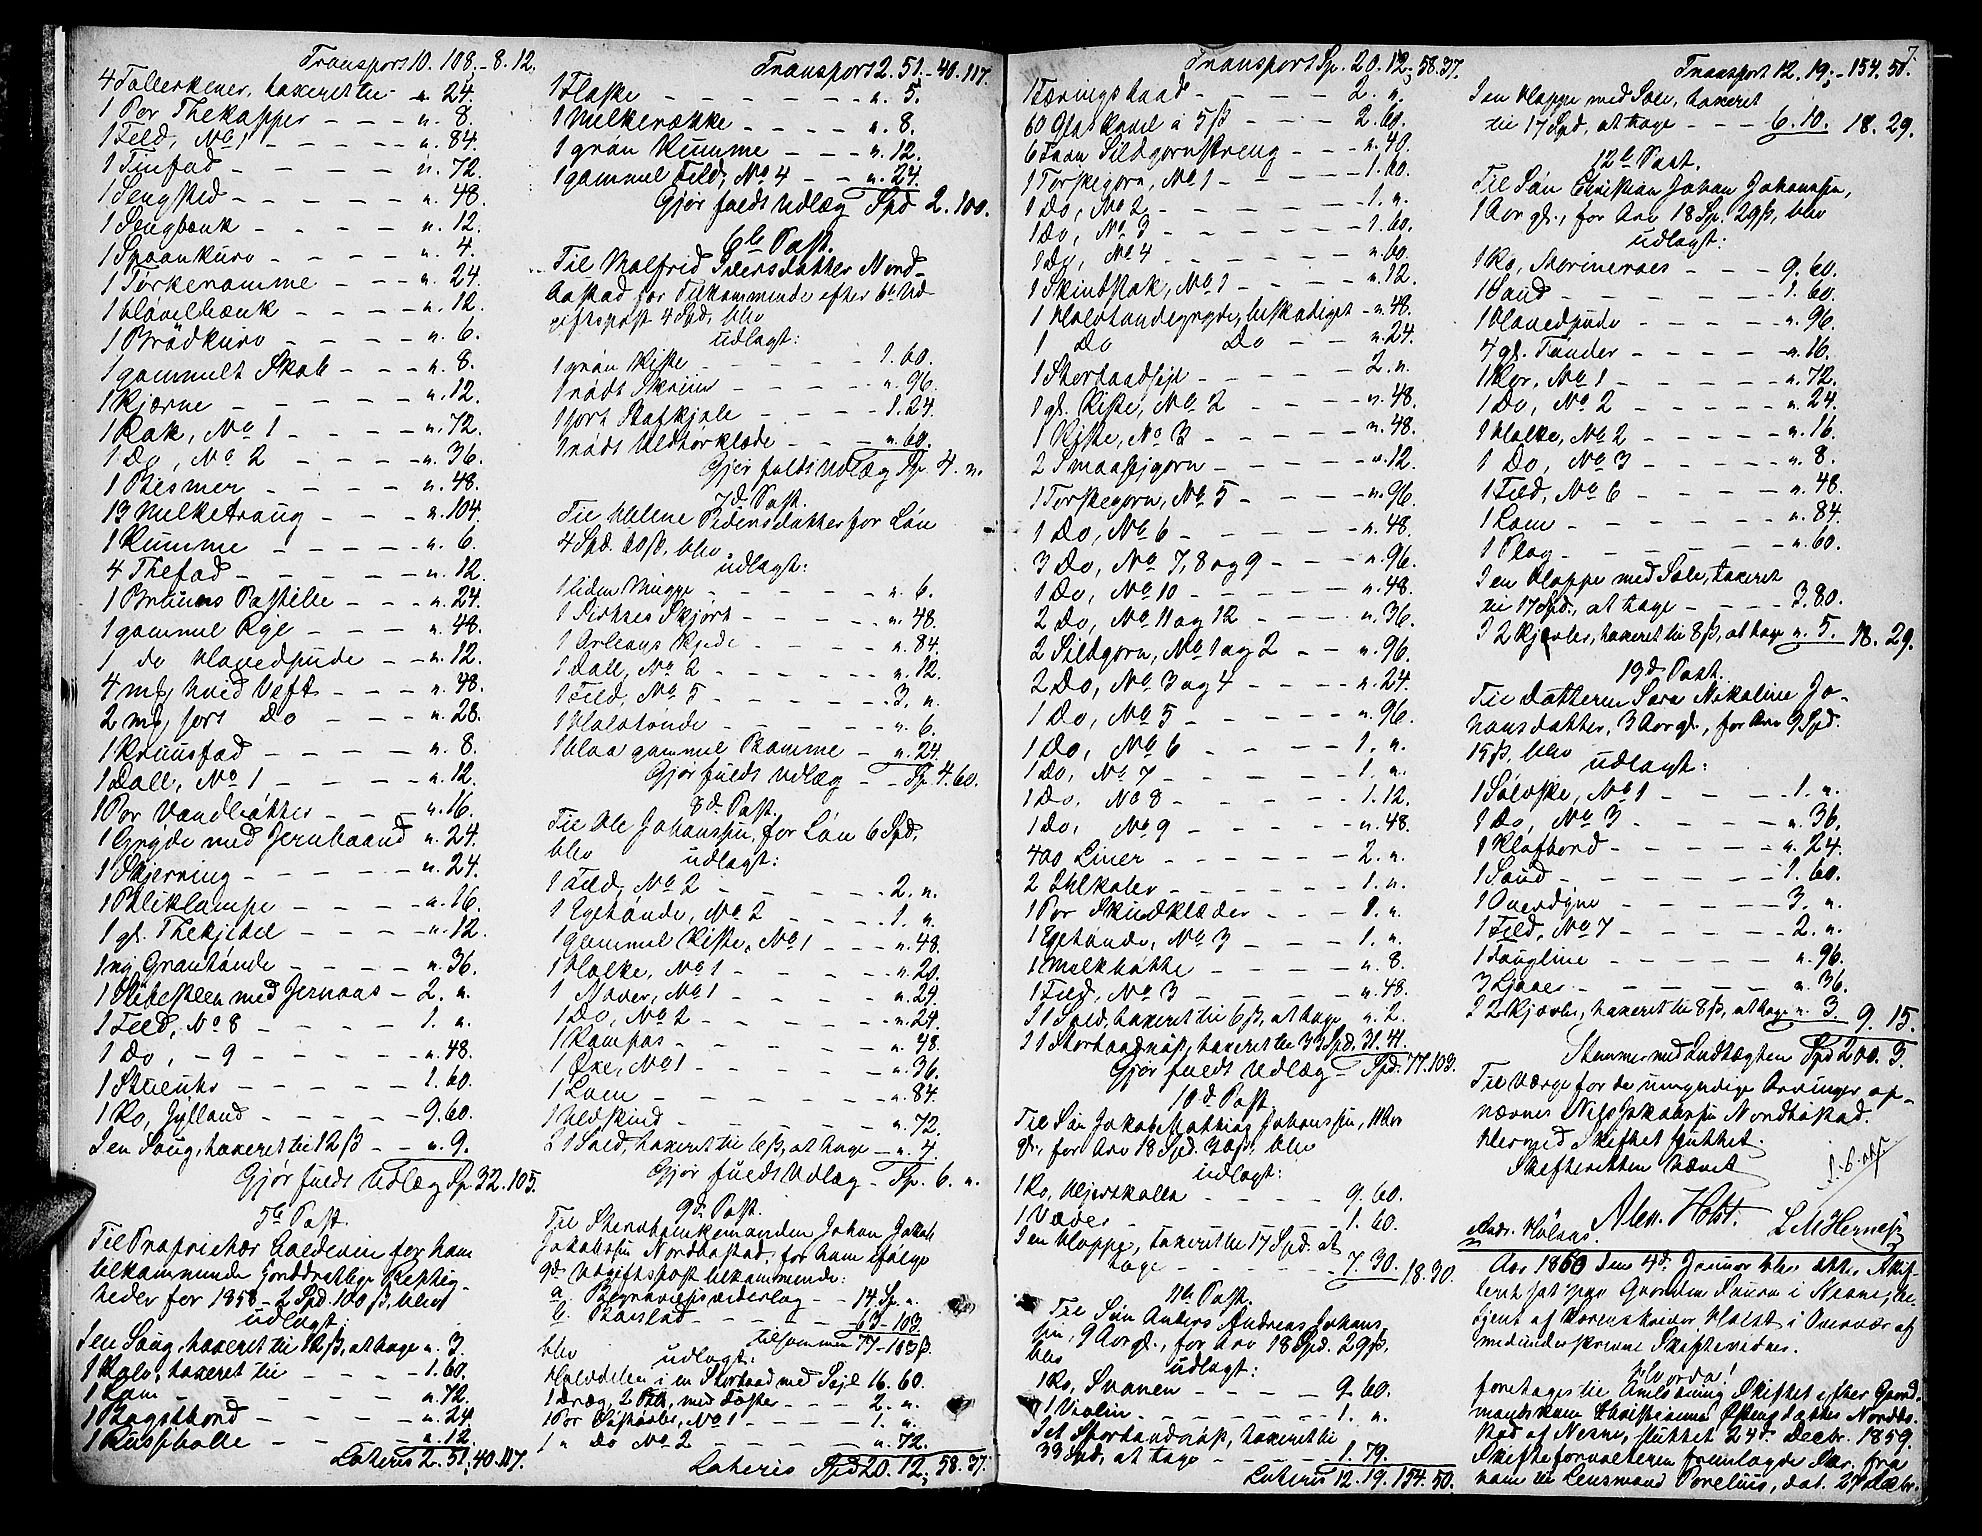 Transport 10. 108. - 8. 12.
4 Tallerkener, taxeret til - „ 24.
1 Par Thekopper - - - „ 8.
1 Feld, No 1 - - - - „ 84.
1 Tinfad - - - - „ 72.
1 Sengsted - - - - „ 48.
1 Sengbænk - - - - „ 12.
1 Spaankurv - - - - „ 4.
1 Tørkeramme - - - - „ 24.
1 Høvelbænk - - - - „ 12.
1 Brødkurv - - - - „ 6.
1 gammelt Skab - - - „ 8.
1 Kjærne - - - - „ 12.
1 Rok, No 1 - - - - „ 72.
1 Do, No 2 - - - - „ 36.
1 Bismer - - - - „ 48.
13 Melketraug - - - „ 104.
1 Kumme - - - - „ 6.
4 Thefad - - - - „ 12.
1 Postille - - - „ 24.
1 gammel Rye - - - „ 48.
1 do Hovedpude - - - „ 12.
4 mk hvid Veft - - - „ 48.
2 mk sort Do - - - „ 28.
1 Fad - - - - „ 8.
1 Dall, No 1 - - - - „ 12.
1 Par Vandbøtter - - - „ 16.
1 Gryde med Jernhaand „ 24.
1 Skjerring - - - - „ 24.
1 Bliklampe - - - - „ 16.
1 gl. Thekjedel - - - - „ 12.
1 ny Grantønde - - - - „ 36.
1 Slibesteen med Jernaas - 2. „
1 Feld, No 8 - - - - 1. „
1 Do, - 9 - - - - „ 48.
1 Stueuhr - - - - 1. 60.
1 Ko, Jylland - - - - 9. 60.
I en Saug, taxeret til 12 ß - - „ 9.
Gjør fuldt Udlæg Sp. 32. 105.
5te Post.
Til Proprietær Coldevin for ham
tilkommende jorddrotlige Rettig-
heder for 1858 - 2 Spd. 100 ß, blev
udlagt:
I en Saug, taxeret til 12 ß, at tage „ 3.
1 Kalv, taxeret til - - - - 1. 60.
1 Lam - - - - „ 72.
1 Bagstbord - - - - „ 24.
1 - - - - „ 12.
Lateris 2. 51. 40. 117.
Transport 2. 51. - 40. 117.
1 Flaske - - - - „ 5.
1 Melkerække - - - - „ 8.
1 grøn Kumme - - - „ 12.
1 gammel Feld, No 4 - - „ 24.
Gjør fuldt Udlæg Spd 2. 100.
6te Post.
Til Malfrid Iversdatter Nord-
bostad for Tilkommende efter 6te Ud-
giftspost 4 Spd, blev
udlagt:
1 grøn Kiste - - - - 1. 60.
1 rødt Skriin - - - - „ 96.
1 sort Stofkjole - - - - 1. 24.
1 rødt Uldtørklæde - - - „ 60.
Gjør fuldt Udlæg Sp. 4. „
7de Post.
Til Malene Pedersdatter for Løn
4 Spd. 60 ß, blev
udlagt:
1 liden Mugge - - - - „ 6.
1 Skjørt - - - - „ 48.
1 Orleans Kjole - - - - „ 84.
1 Dall, No 2 - - - - „ 12.
1 Feld, No 5 - - - - 3. „
1 Halvtønde - - - - „ 6.
1 blaa gammel Kumme - „ 24.
Gjør fuldt Udlæg - - Sp. 4. 60.
8de Post.
Til Ole Johanssen, for Løn 6 Spd,
blev udlagt:
1 Feld, No 2 - - - - 2. „
1 Egetønde, No 2 - - - - 1. „
1 gammel Kiste, No 1 - - - „ 48.
1 Holke, No 1 - - - - „ 20.
1 Naver, No 1 - - - - „ 24.
1 Do, No 2 - - - - „ 24.
1 Kompas - - - - „ 48.
1 Øxe, No 1 - - - - „ 36.
1 Lam - - - - „ 84.
1 Uldskind - - - - „ 72.
I 1 Sold, taxeret til 6 ß, at tage - „ 4.
Gjør fuldt Udlæg - Sp. 6. „
9de Post.
Til Stervbøinkemanden Johan Jakob
Jakobssen Nordbostad, for ham ifølge
9de Udgiftspost tilkommende:
a. Begravelsesvederlag - - 14 Sp. „
b. Boeslod - - - - 63 - 103.
tilsammen 77 - 103 ß.
blev udlagt:
Halvdelen i en Storbaad med Seil 16. 60.
1 Dræg, 2 , med Toster - - - 2. „
1 Par , No 1 - - - 1. „
1 „ Do No 2 - - - - „ 72.
Lateris Spd 20. 12. 58. 37.
Transport Sp. 20. 12. 58. 37.
1 Færingsbaad - - - - 2. „
60 Glaskavl a 5 ß - - - 2. 60.
6 Favn Sildgarnstreng - - - „ 48.
1 Torskegarn, No 1 - - - - 1. 60.
1 Do, No 2 - - - - 1. „
1 Do, No 3 - - - - 1. 60.
1 Do, No 4 - - - - „ 60.
1 Skindstak, No 1 - - - - „ 12.
1 Halvtøndegryde, beskadiget - „ 48.
1 Do Do - - „ 24.
1 Storbaadseil - - - - 2. „
1 gl. Kiste, No 2 - - - „ 48.
1 Kiste, No 3 - - - - „ 48.
2 Smaaseigarn - - - - „ 12.
1 Torskegarn, No 5 - - - - „ 96.
1 Do, No 6 - - - - „ 48.
3 Do, No 7, 8 og 9 - - - „ 96.
1 Do, No 10 - - - - „ 48.
2 Do, No 11 og 12 - - - „ 36.
2 Sildgarn, No 1 og 2 - - „ 96.
2 Do, No 3 og 4 - - - „ 24.
1 Do, No 5 - - - - „ 96.
1 Do, No 6 - - - - 1. „
1 Do, No 7 - - - - 1. „
1 Do, No 8 - - - - 1. 12.
1 Do, No 9 - - - - „ 48.
400 Liner - - - - 2. „
2 Ihlkaler - - - - 1. „
1 Par Skindklæder - - - 1. „
1 Egetønde, No 3 - - - - 1. „
1 Melkbøtte - - - - „ 8.
1 Feld, No 3 - - - - „ 48.
I 1 Sold, taxeret til 6 ß, at tage „ 2.
I 1 Storbaadnøst, taxeret til 33 Spd. 31. 41.
Gjør fuldt Udlæg - Spd. 77. 103.
10de Post.
Til Søn Jakob Mathias Johanssen, 11 Aar
gl., for Arv 18 Spd. 30 ß, blev
udlagt:
1 Ko, Hjertskolla - - - - 9. 60.
1 Væder - - - - 1. 60.
I en Hoppe, taxeret til 17 Spd. at
tage - - - - 7. 30. 18. 30.
11te Post.
Til Søn Anders Andreas Johans-
sen, 9 Aar gl., for Arv 18 Spd. 29 ß,
blev udlagt:
1 Ko, Svanen - - - - 9. 60.
1 Violin - - - - 1. „
I et Storbaadnøst, taxeret til
33 Spd, at tage - - - - 1. 79.
Lateris 12. 19. 154. 50.
7.
Transport 12. 19. - 154. 50.
I en Hoppe med Føl, taxeret
til 17 Spd, at tage - - - 6. 10. 18. 29.
12te Post.
Til Søn Christian Johan Johanssen,
1 Aar gl., for Arv 18 Sp. 29 ß, blev
udlagt:
1 Ko, Morinerøs - - - 9. 60.
1 Saud - - - - 1. 60.
1 Hovedpude - - - - „ 96.
4 gl. Tønder - - - - „ 16.
1 Kar, No 1 - - - - „ 72.
1 Do, No 2 - - - - „ 24.
1 Holke, No 2 - - - - „ 16.
1 Do, No 3 - - - - „ 8.
1 Feld, No 6 - - - - „ 48.
1 Lam - - - - „ 84.
1 Plog - - - - „ 60.
I en Hoppe med Føl, taxeret
til 17 Spd., at tage - - - - 3. 80.
I 2 Kjævler, taxeret til 8 ß, at tage „ 5. 18. 29.
13de Post.
Til Datteren Sara Nikoline Jo-
hansdatter, 3 Aar gl., for Arv 9 Spd.
15 ß, blev udlagt:
1 Sølvske, No 1 - - - - 1. „
1 Do, No 3 - - - - „ 36.
1 Klafbord - - - - „ 24.
1 Saud - - - - 1. 60.
1 Overdyne - - - - 3. „
1 Feld, No 7 - - - - 2. „
1 Tougline - - - - „ 96.
3 Ljaaer - - - - „ 36.
I 2 Kjævler, taxeret til 8 ß, at tage „ 3. 9. 15.
Stemmer med Indtægten Spd 200. 3.
Til Værge for de umyndige Arvinger op-
nævnes Nils Jakobssen Nordbostad.
Hermed Skiftet sluttet.
Skifteretten hævet
Alex. Holst.
Andr. Hølsæs. L M Hernesz
Aar 1860 den 4de Januar blev atter Skif-
teret sat paa Gaarden Saura i Nesne, be-
tjent af Sorenskriver Holst i Overvær af
medunderskrevne Skiftevidner.
Hvorda!
foretoges til Omløsning Skiftet efter Gaard-
mandskone Christianna Østensdatter Nordbo-
stad af Nesne, sluttet 24de Decbr. 1859.
Skifteforvalteren fremlagde Skr. fra
ham til Lensmand Porelius, dat. 27 Decbr.